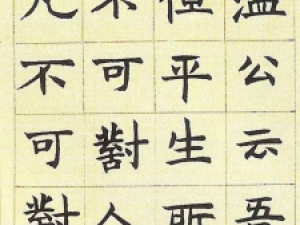 溫公云吾
但平生所
不可對人
凡不可對